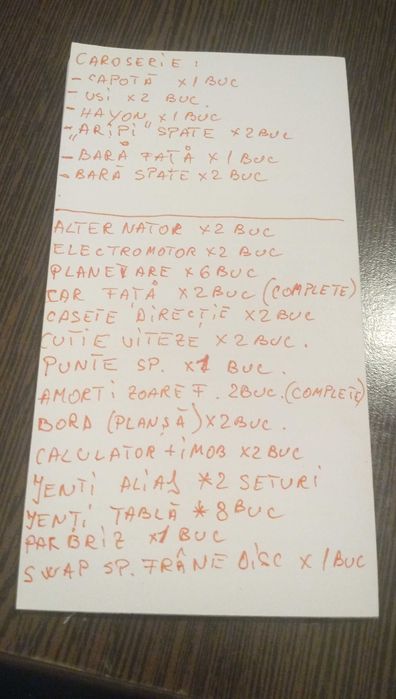 CAROSERIE :
- CAPOTĂ x1 BUC
- USI x2 BUC.
- HAYON x1 BUC
- "ARIPI" SPATE x2 BUC
- BARĂ FAȚĂ x1 BUC
- BARĂ SPATE x2 BUC
ALTERNATOR x2 BUC
ELECTROMOTOR x2 BUC
PLANETARE x6 BUC
CAR FAȚĂ x2BUC (COMPLETE)
CASETE DIRECȚIE x2BUC
CUTIE VITEZE x2 BUC.
PUNTE SP. x1 BUC.
AMORTIZOARE F. 2BUC. (COMPLETE)
BORD (PLANȘĂ) x2BUC.
CALCULATOR + IMOB x2BUC
JENTI ALIAJ *2 SETURI
JENȚI TABLĂ * 8 BUC
PARBRIZ x1 BUC
SWAP SP. FRÂNE DISC x 1 BUC